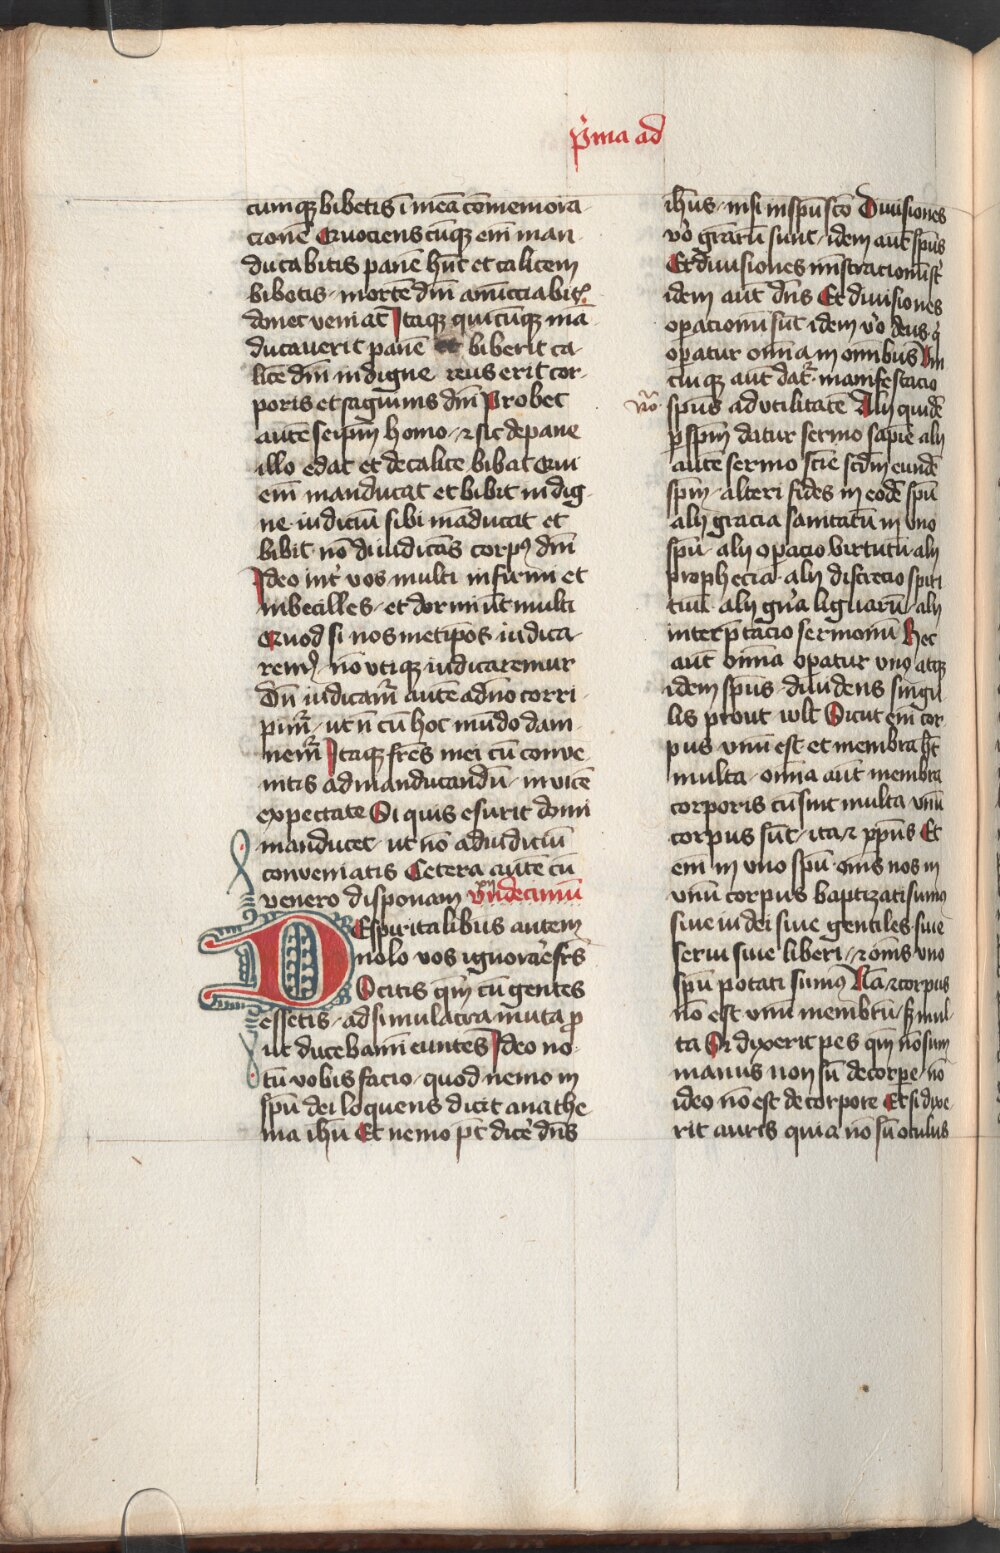 p̄ma ad
cumq̢ bibetis ī meā cōmemora-
cionē Quociens cūq̢ em̄ man-
ducabitis panē hūc et calicem
bibetis · mortē dm̄ anūcciabit᷒
donec veniat Itaq̢ quicūq̢ mā
ducauerit panē et biberit ca-
licē dm̄ indigne reus erit cor-
poris et sagwinis dm̄ Probet
autē seip̄m homo · ⁊ sic de pane
illo edat et de calice bibat Qui
em̄ manducat et bibit indig-
ne · iudiciū sibi māducat et
bibit · nō diiudicās corpꝰ dm̄
Ideo int̉ vos · multi infirmi et
inbecilles · et dormiūt multi
Quod si nosmetip̄os iudica-
remꝰ · nō vtiq̢ iudicaremur
Dū iudicam̄ autē a dn̄o corri-
pim̄ · ut n̄ cū hoc mūdo dam-
nem̄ Itaq̢ fr̄es mei cū conue-
nitis ad manducandū · invicē
expectate Si quis esurit domi
manducet · ut nō ad iudiciū
conveniatis Cetera autē cū
venero disponam Vndecimū
DEspiritalibus autem
nolo vos ignorar̉e fr̄s
Scitis qm̄ cū gentes
essetis · ad simulacra muta p̱
ut ducebam̄i euntes Ideo no-
tū vobis facio · quod nemo in
sp̄u dei loquens dicit anathe
ma ih̄u Et nemo pt̄ dic̉e dn̄s
ih̄us · nisi in sp̄u sc̄o Diuisiones
vỏ gr̄arū sunt · idem aut̄ sp̄us
Et diuisiones mīstracionū sт̉
idem aut̄ dn̄s Et diuisiones
op̱acionū sūt idem vỏ deus · q̉
op̱atur om̄ia in om̄ibus Vni
cuiq̢ aut̄ dat᷒ · manifestacio
sp̄us ad vtilitatē Alij quidē
p̱ sp̄m datur sermo sapīe alij
autē sermo sc̄ie scd̄m eundē
sp̄m · alteri fides in eodē sp̄u
alij gracia sanitatū in vno
sp̄u · alij op̱acio virtutū · alij
prophecia · alij discrecio spiri
tuū · alij gr̄a liguarū · alij
interp̄tacio sermonū Hec
aut̄ om̄ia op̱atur vnꝰ atq̢
idem sp̄us · diuidens singu
lis prout wlt Sicut em̄ cor
pus vnū est et membra hꝫ
multa · om̄ia aut̄ membra
corporis cū sint multa vnū
corpus sūt · ita ⁊ xp̄us Et
em̄ in vno sp̄u · om̄s nos in
vnū corpus baptizati sumꝰ
siue iudei siue gentiles · siue
serui siue liberi · ⁊ om̄s vno
sp̄u potati sumꝰ Nā ⁊ corpus
nō est vnū membrū · sꝫ mul
ta Si dixerit pes qm̄ nō sum
manus non sū de corpe̱ · nō
ideo nō est de corpore Et si dixe-
rit auris quia nō sū oculus